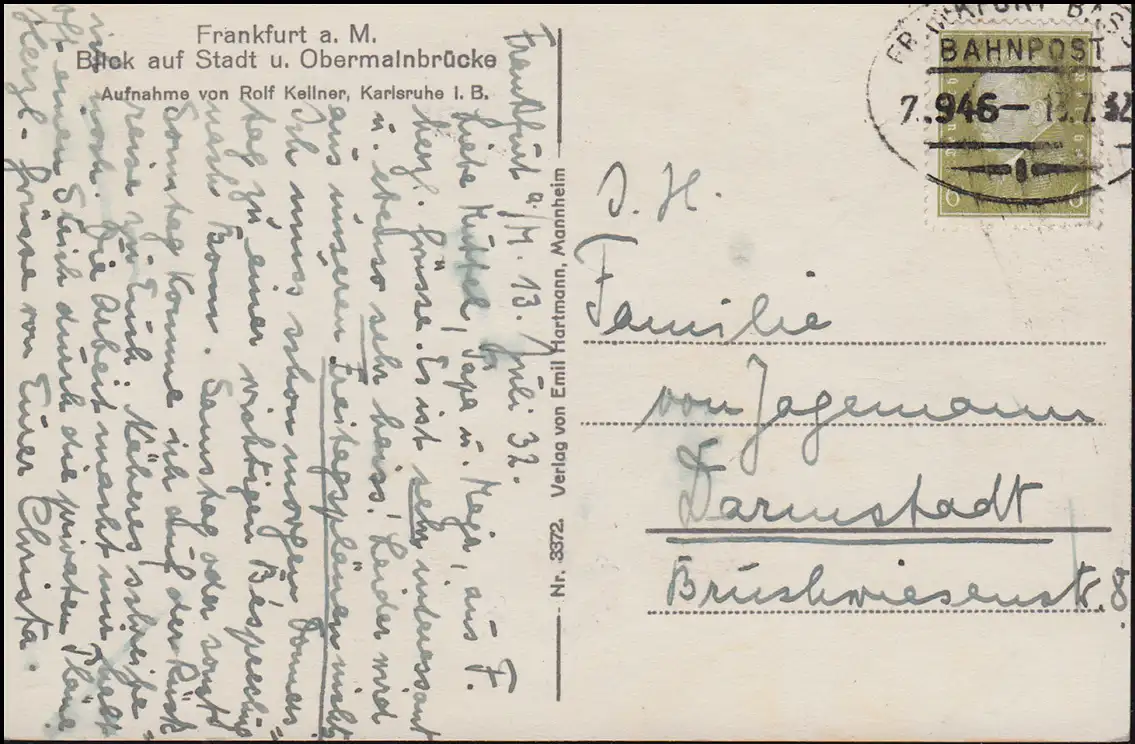 Frankfurt a. M.
Blick auf Stadt u. Obermainbrücke
Aufnahme von Rolf Kellner, Karlsruhe i. B.
Frankfurt a/M. 13. Juli 32.
Liebe Muttel, Papa u. Megi, aus F.
herzl. Grüsse. Es ist sehr interessant
u. ebenso sehr heiss! Leider wird
aus unseren Freitagsplänen nichts
Ich muss schon morgen Donners-
tag zu einer wichtigen Besprechung
nach Bonn. Samstag oder sonst
Sonntag komme ich auf der Rück
reise zu Euch. Näheres schreibe
ich noch. Die Arbeit macht mir halt
oft einen Strich durch die privaten Pläne
Herzl. Grüsse von Eurer Christa.
Nr. 3372. Verlag von Emil Hartmann, Mannheim
FRANKFURT BAS
BAHNPOST
7.946 13.7.32
6 6
S. H.
Familie
von Jagemann
Darmstadt
Bruchwiesenstr. 8